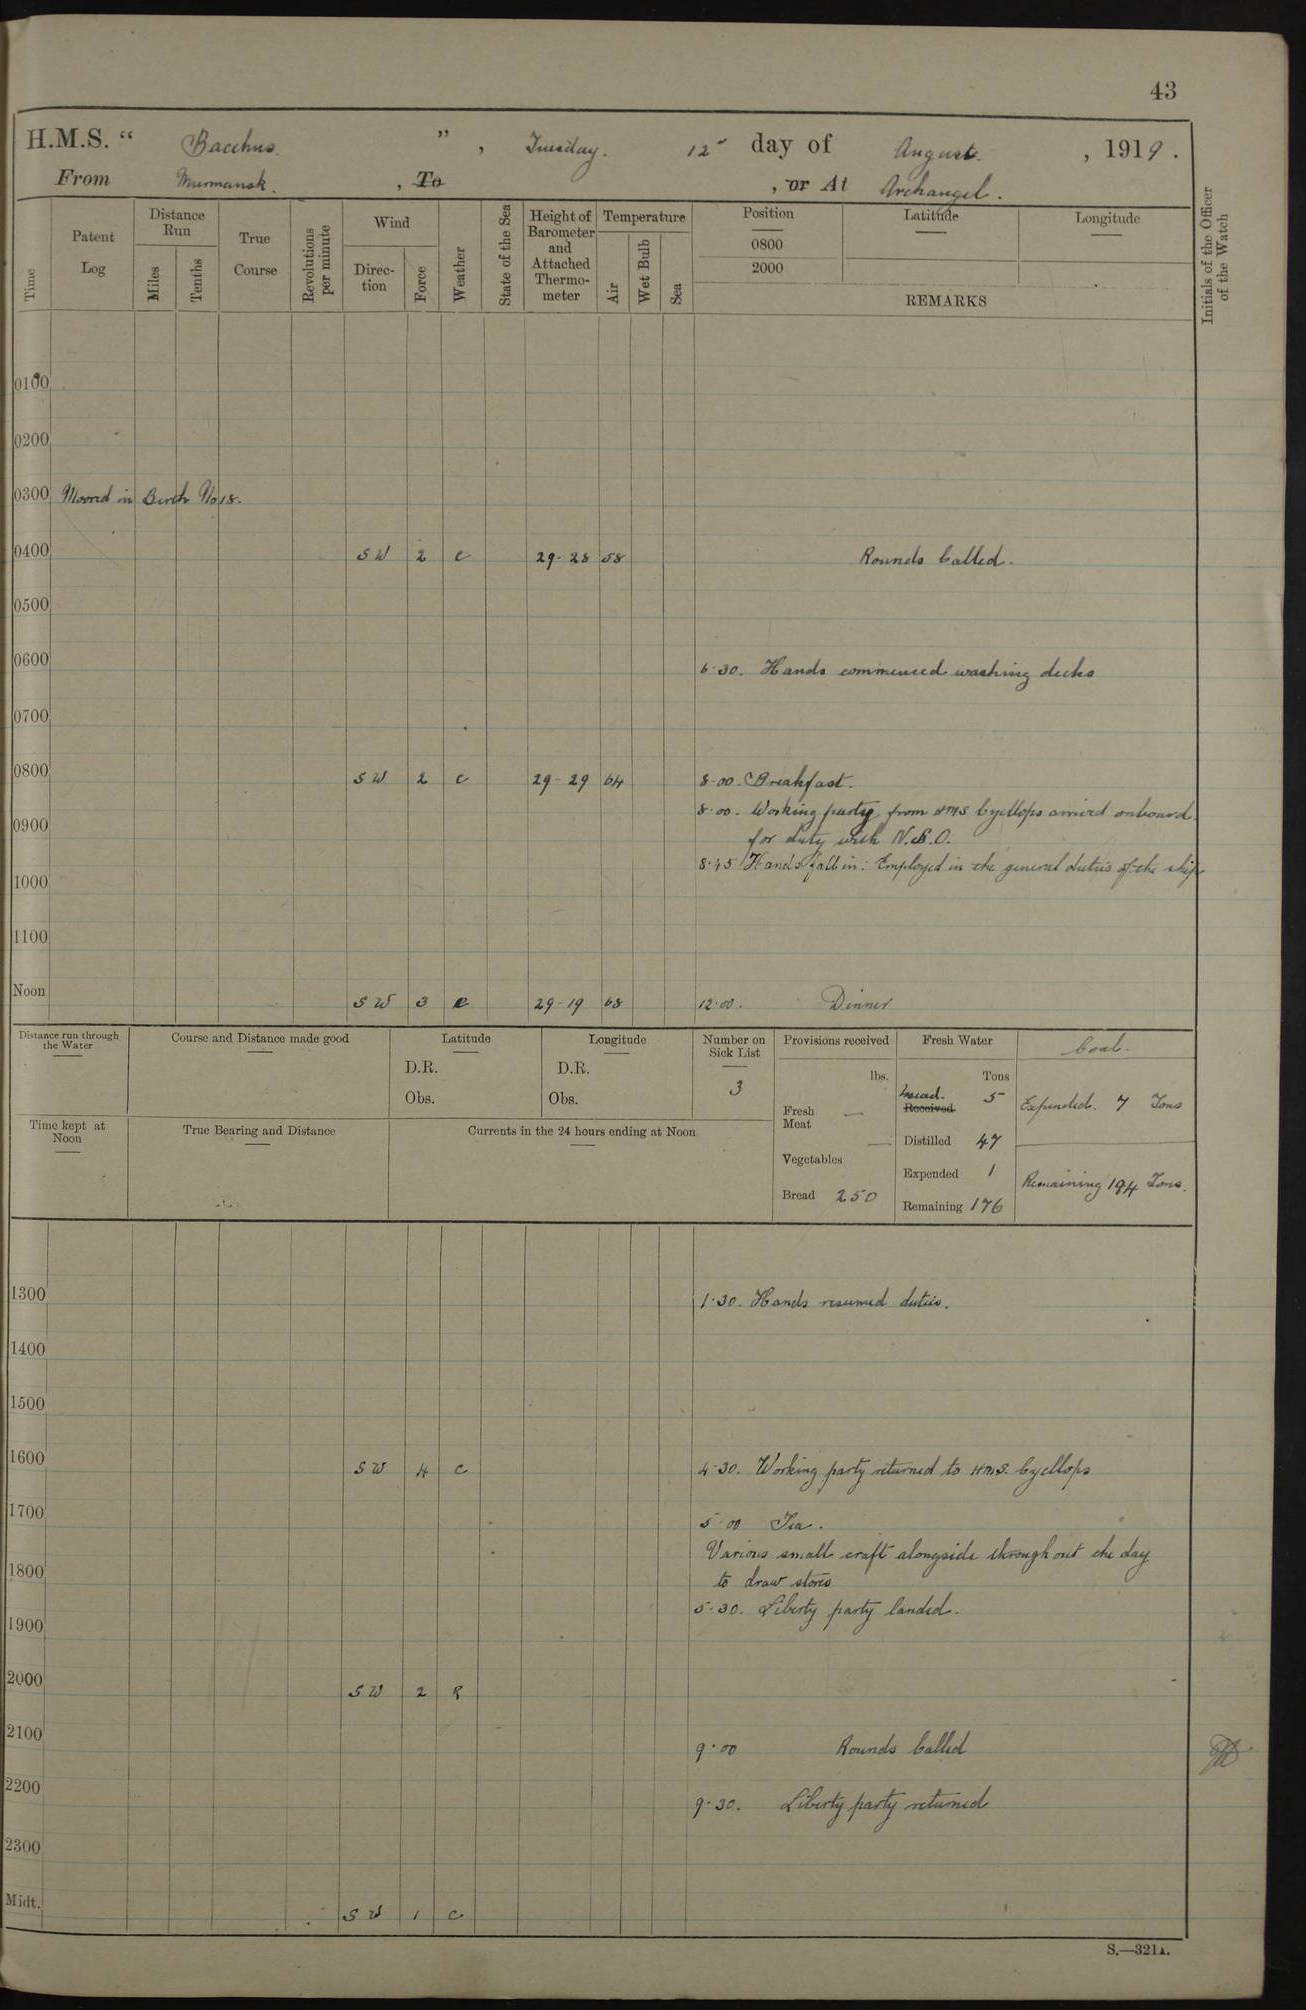 43
H.M.S. " Bacchus. ", Tuesday. 12th day of August. , 1919.
From Murmansk. , To , or At Archangel.
Time
Patent Log
Distance Run
Miles
Tenths
True Course
Revolutions per minute
Wind
Direc-tion
Force
Weather
State of the Sea
Height of Barometer and Attached Thermo-meter
Temperature
Air
Wet Bulb
Sea
Position
0800
2000
Latitude
Longitude
REMARKS
Initials of the Officer of the Watch
0100
0200
0300 Moored in Berth No 18.
0400 SW 2 c 29-28 58 Rounds Called.
0500
0600
6.30. Hands commenced washing decks
0700
0800 SW 2 c 29-29 64 8.00. Breakfast.
8.00. Working party from HMS Cycllops arrived onboard
0900
for duty with N.S.O.
8.45 Hands fall in: Employed in the general duties of the ship
1000
1100
Noon SW 3 c 29-19 68 12.00. Dinner
Distance run through the Water
Course and Distance made good
Latitude
D.R.
Obs.
Longitude
D.R.
Obs.
Number on Sick List
3
Provisions received
lbs.
Fresh Meat —
Vegetables —
Bread 250
Fresh Water
Tons
Received 5
Distilled 47
Expended 1
Remaining 176
Coal.
Expended. 7 Tons
Remaining 194 Tons.
Time kept at Noon
True Bearing and Distance
Currents in the 24 hours ending at Noon
1300
1.30. Hands resumed duties.
1400
1500
1600 SW 4 c 4.30. Working party returned to HMS. Cycllops
1700
5.00 Tea.
Various small craft alongside throughout the day
1800
to draw stores
5.30. Liberty party landed.
1900
2000 SW 2 R
2100
9.00 Rounds Called
2200
9.30. Liberty party returned
2300
Midt. SW 1 c
S.—321A.